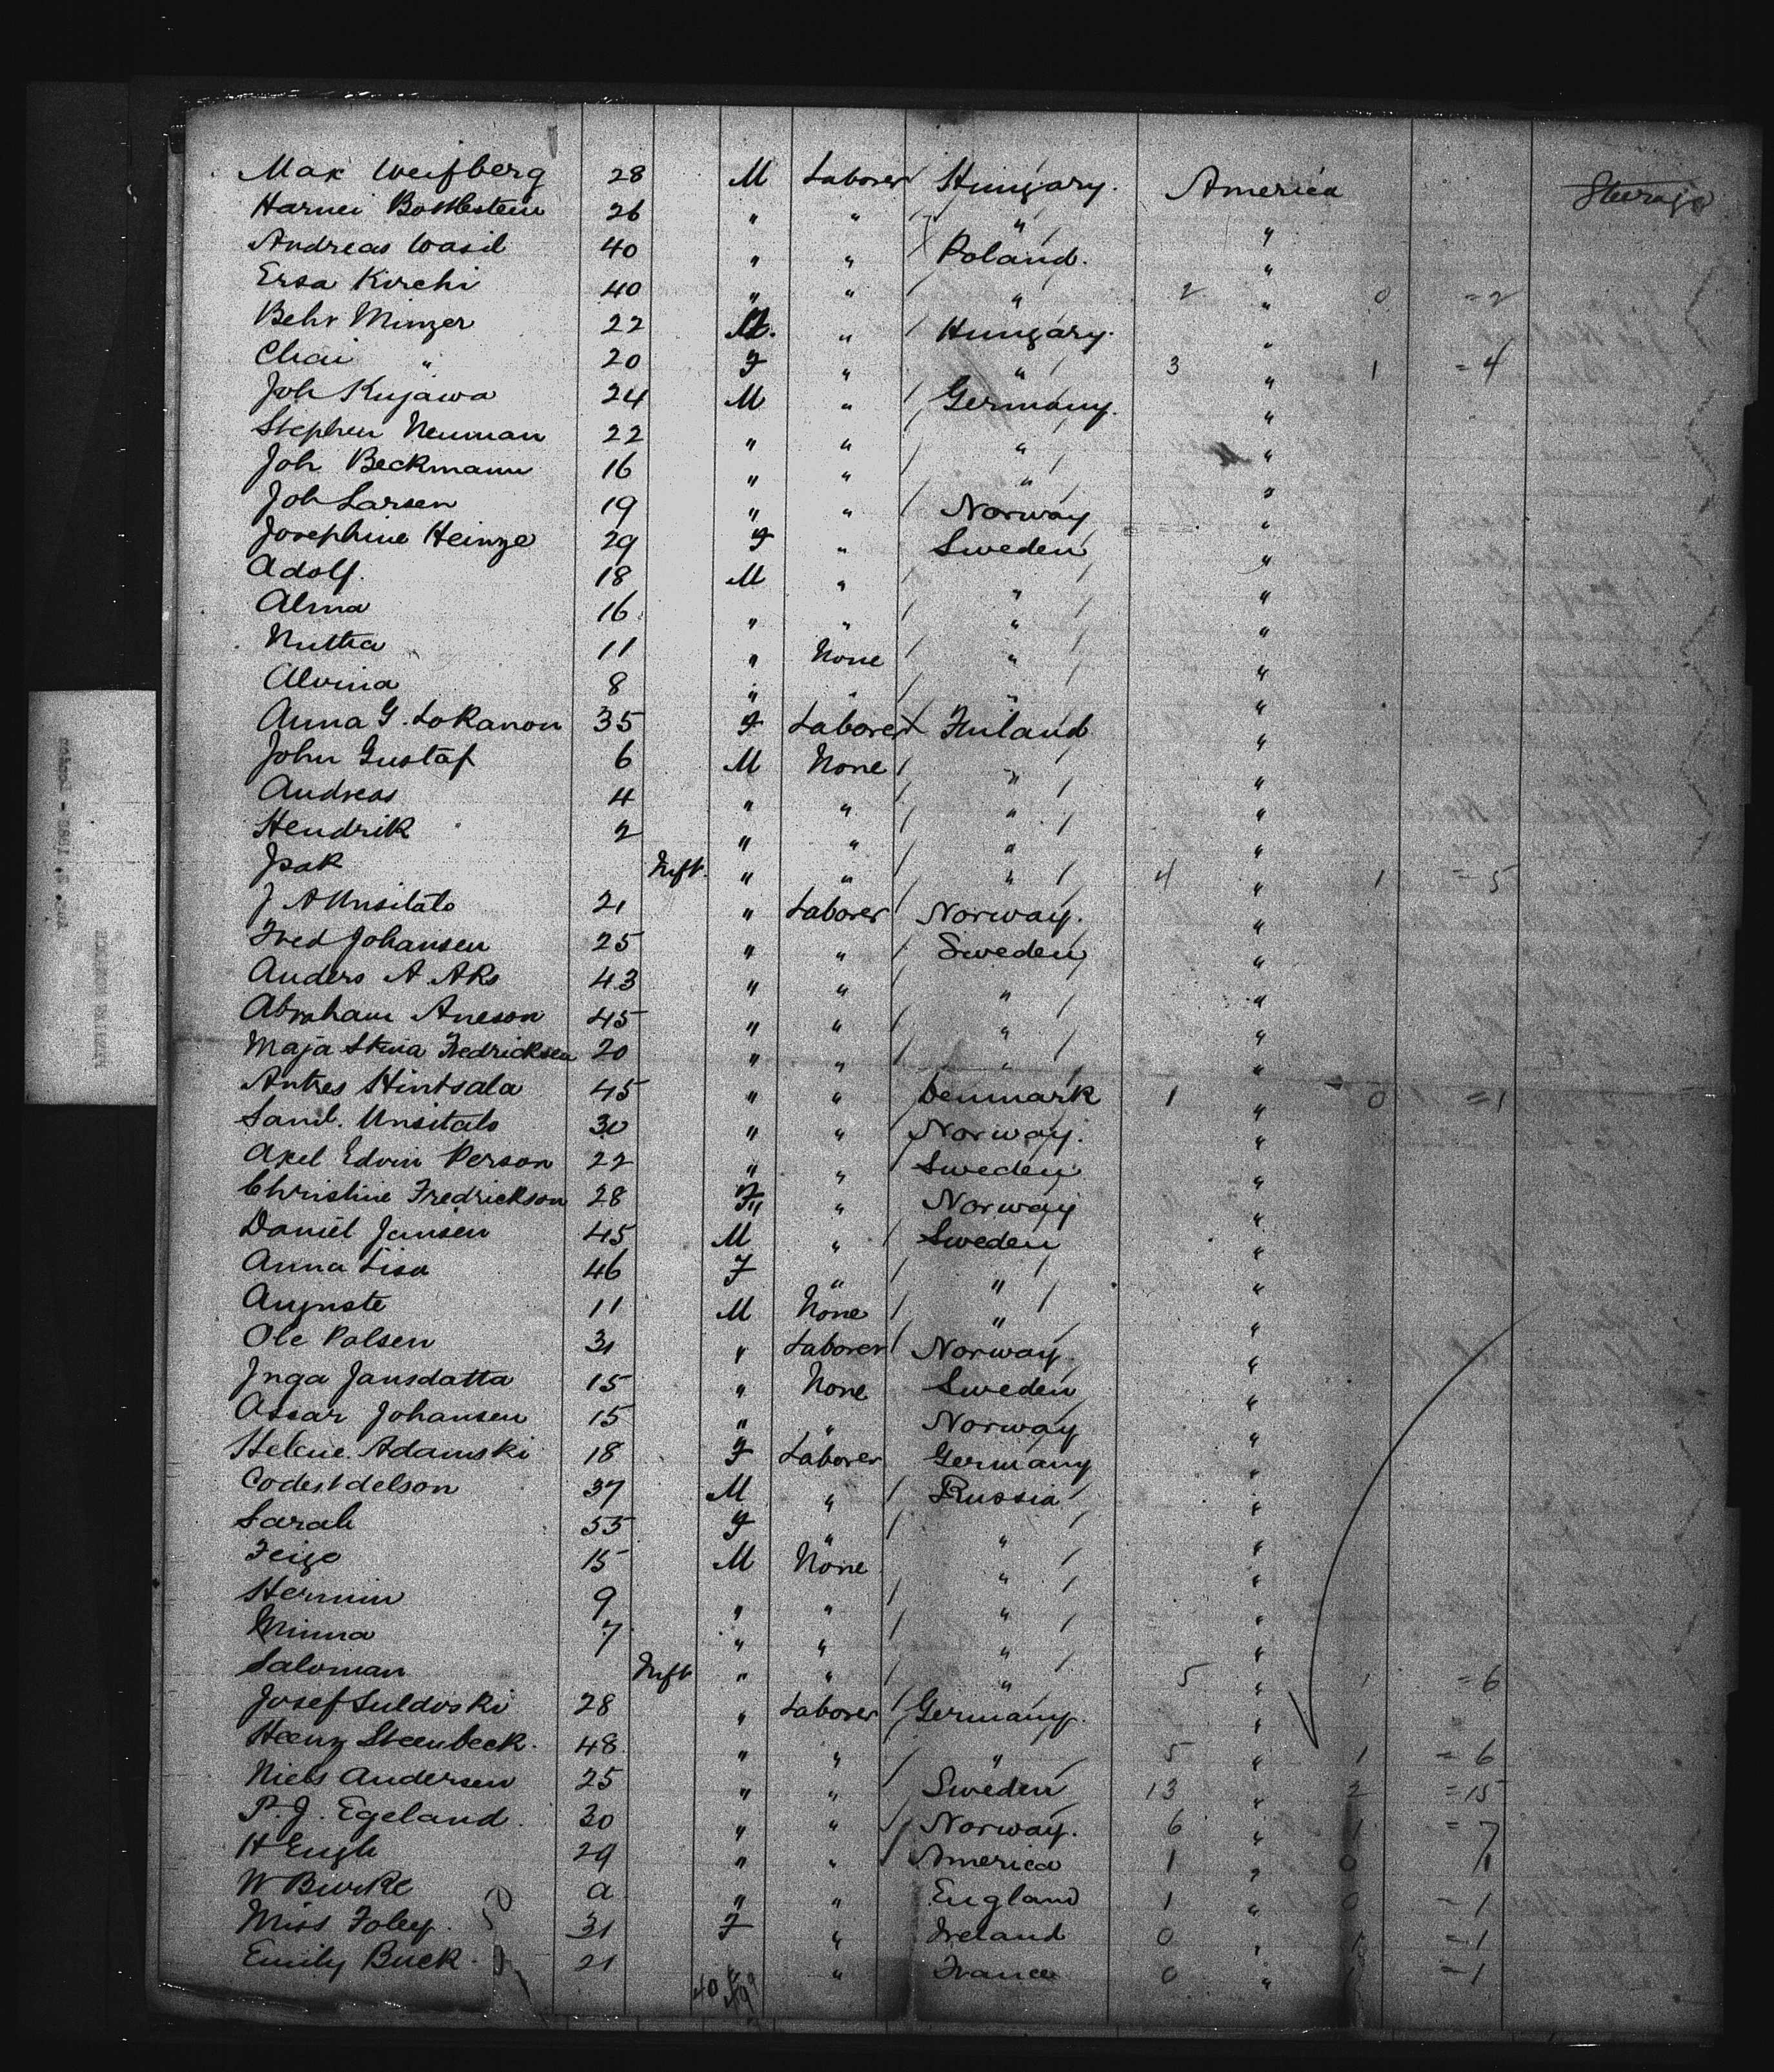 Max Weifberg 28 M Laborer Hungary. America Steerage
Harnei Bottlestein 26 " " " "
Andreas Wasil 40 " " Poland. "
Ersa Kirchi 40 " " " 2 " 0 =2
Behr Minzer 22 M. " Hungary. "
Chai " 20 F " " 3 " 1 =4
Joh Kujawa 24 M " Germany. "
Stephen Neuman 22 " " " "
Joh Beckmann 16 " " " "
Joh Larsen 19 " " Norway "
Josephine Heinze 29 F " Sweden "
Adolf. 18 M " " "
Alma 16 " " " "
Nutta 11 " None " "
Alvina 8 " " " "
Anna G. Lokanon 35 F Laborer Finland "
John Gustaf 6 M None " "
Andreas 4 " " " "
Hendrik 2 " " " "
Isak Inft. " " " 4 " 1 =5
J A Unsitalo 21 " Laborer Norway. "
Fred Johansen 25 " " Sweden "
Anders A. Aks 43 " " " "
Abraham Aneson 45 " " " "
Maja Stina Fredricksen 20 " " " "
Antres Hintsala 45 " " Denmark 1 " 0 =1
Saml. Unsitalo 30 " " Norway. "
Axel Edvin Person 22 " " Sweden "
Christine Fredrickson 28 F " Norway "
Daniel Jansen 45 M " Sweden "
Anna Lisa 46 F " " "
Auguste 11 M None " "
Ole Palsen 31 " Laborer Norway. "
Inga Jansdatta 15 " None Sweden "
Assar Johansen 15 " " Norway "
Helene Adamski 18 F Laborer Germany "
Codes Edelson 37 M " Russia "
Sarah 55 F " " "
Feige 15 M None " "
Hermin 9 " " " "
Minna 7 " " " "
Saloman Inft " " " 5 " 1 =6
Josef Suldoski 28 " Laborer Germany. "
Heeny Steenbeck. 48 " " " 5 " 1 =6
Niels Andersen 25 " " Sweden 13 " 2 =15
P. J. Egeland. 30 " " Norway. 6 " 1 =7
H Engh 29 " " America 1 " 0 1
W Burke a " " England 1 " 0 =1
Miss Foley. 31 F " Ireland 0 " 1 =1
Emily Buck. 21 " France 0 " 1 =1
40